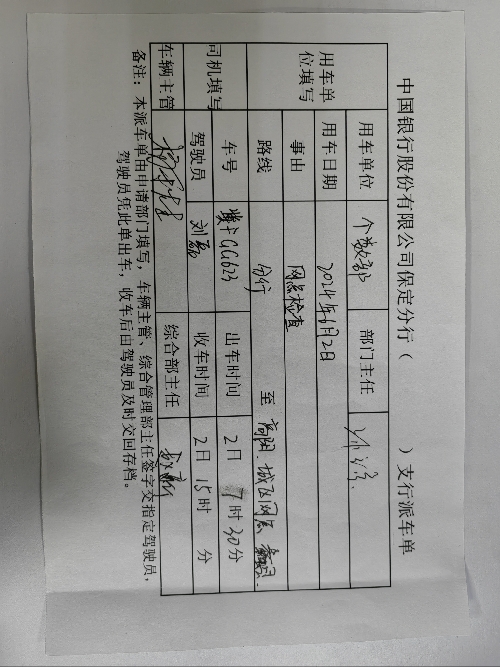 中国银行股份有限公司保定分行（ ）支行派车单
用车单位填写 用车单位 个数部 部门主任
用车日期 2024年6月2日
事由 网点检查
路线 分行 至 高阳.城区网点
司机填写 车号 GG623 出车时间 2日 7时30分
驾驶员 刘磊 收车时间 2日 15时 分
车辆主管 综合部主任
备注：本派车单由申请部门填写，车辆主管、综合管理部主任签字交指定驾驶员，
驾驶员凭此单出车，收车后由驾驶员及时交回存档。